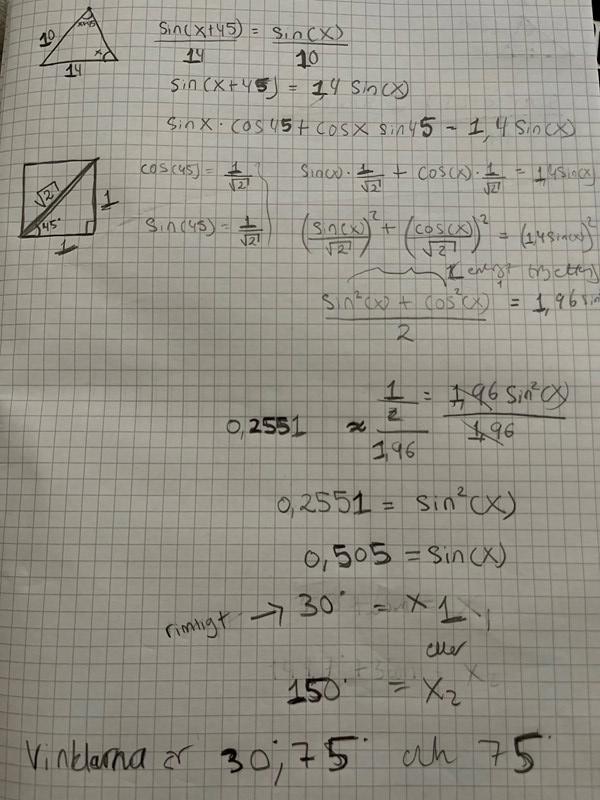 10
x+45
x
14
sin(x+45)/14 = sin(x)/10
sin(x+45) = 1,4 sin(x)
sinx · cos45 + cosx sin45 = 1,4 sin(x)
√2
1
45°
1
cos(45) = 1/√2
sin(45) = 1/√2
sin(x) · 1/√2 + cos(x) · 1/√2 = 1,4sin(x)
(sin(x)/√2)² + (cos(x)/√2)² = (1,4sin(x))²
1 enligt
(sin²(x) + cos²(x))/2 = 1,96 sin
0,2551 ≈ (1/2)/1,96 = 1,96 sin²(x)/1,96
0,2551 = sin²(x)
0,505 = sin(x)
rimligt → 30° = x1
eller
150° = x₂
Vinklarna är 30°, 75° och 75°